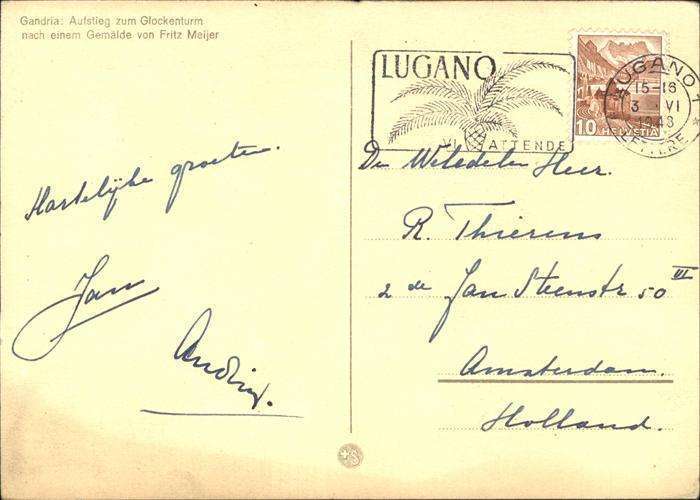 Gandria: Aufstieg zum Glockenturm
nach einem Gemälde von Fritz Meijer
LUGANO
VI ATTENDE
LUGANO 1
15-16
3 VI
1948
LETTERE
10 HELVETIA
Hartelijke groeten.
Jan
De Weledelen Heer.
R. Thierens
2 de Jan Steenstr 50 III
Amsterdam.
Holland.